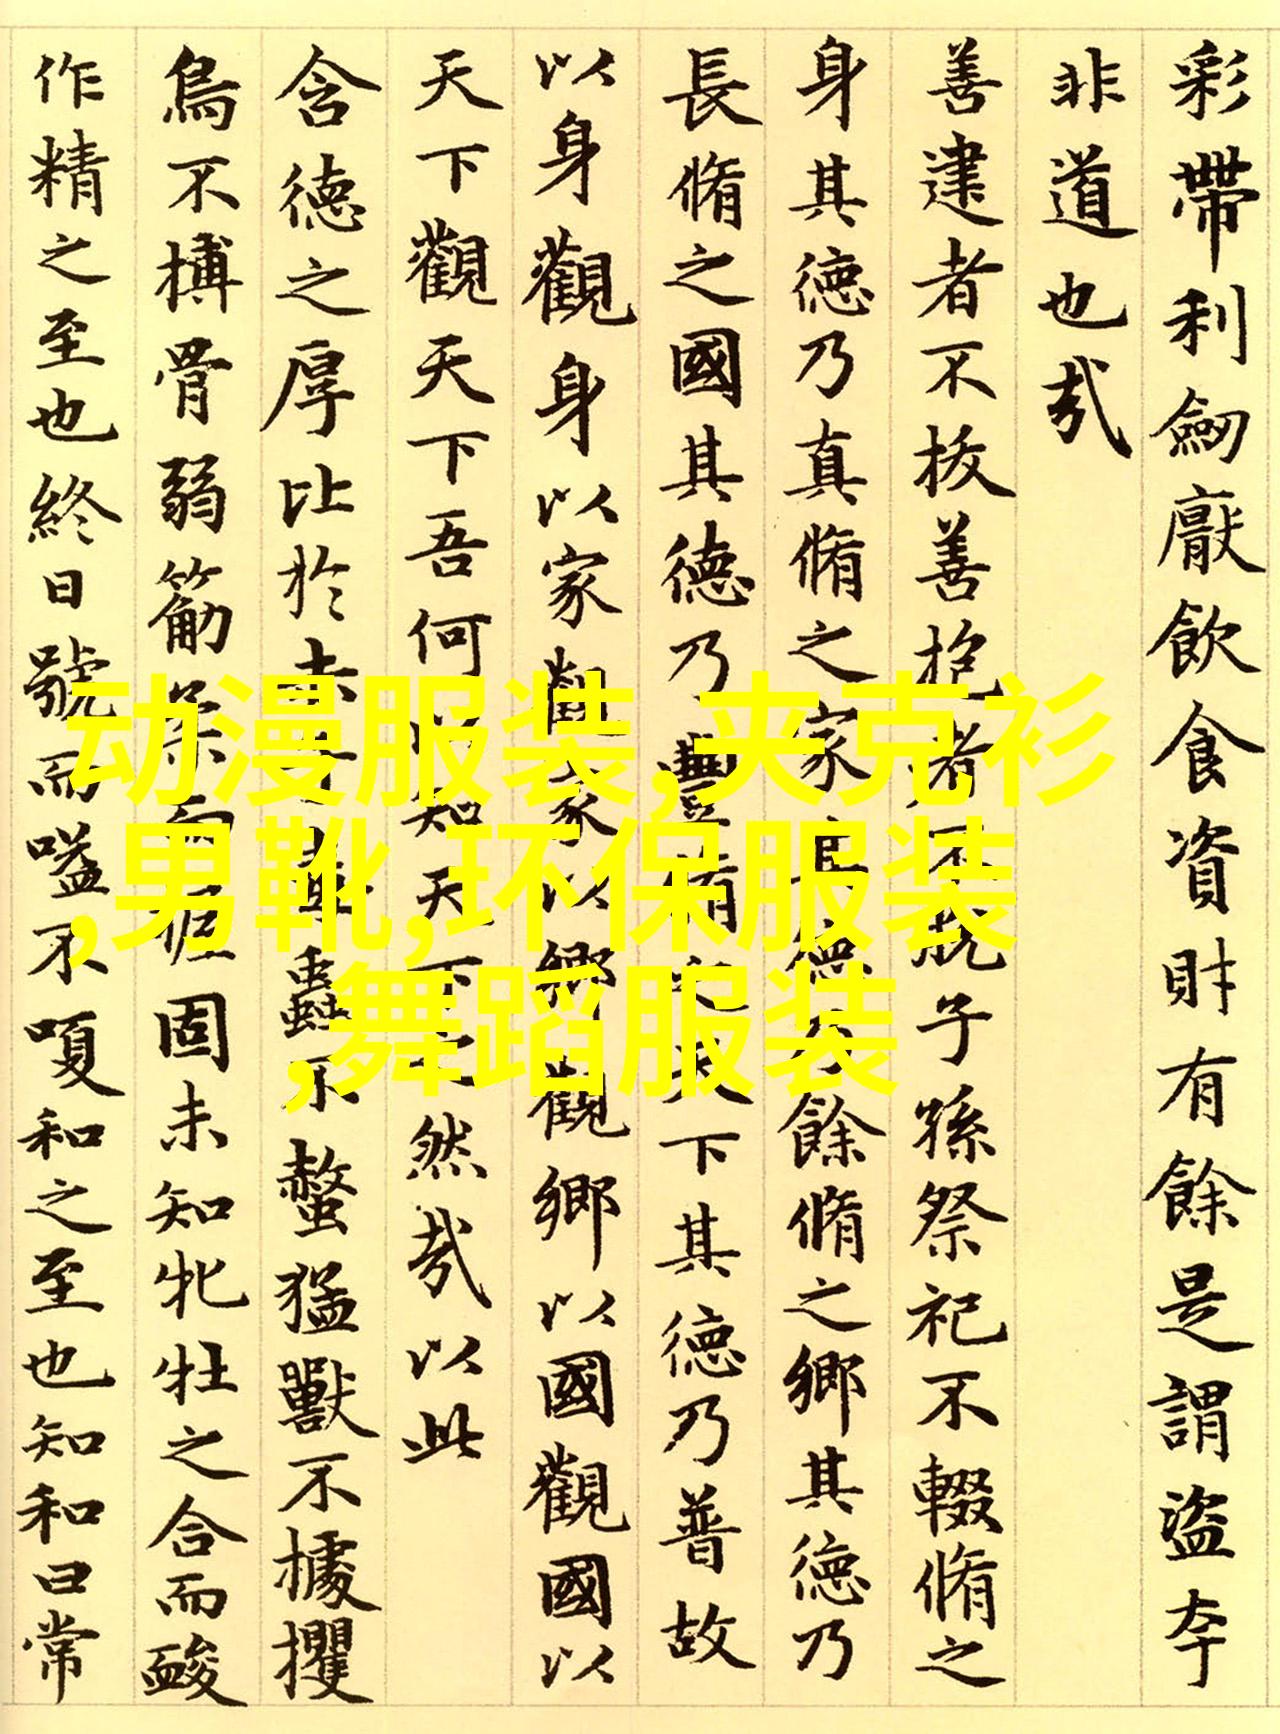 彩帶利劒厭飲食資財有餘是謂盜夸
非道也哉
善建者不拔善抱者不脫子孫祭祀不輟脩之
身其德乃真脩之家其德乃餘脩之鄉其德乃
長脩之國其德乃豐脩之天下其德乃普故
以身觀身以家觀家以鄉觀鄉以國觀國以
天下觀天下吾何以知天下之然哉以此
含德之厚比於赤子毒蟲不螫猛獸不據攫
鳥不搏骨弱筋柔而握固未知牝牡之合而
作精之至也終日號而嗌不嗄和之至也知和曰常
动漫服装,夹克衫
,男靴,环保服装
,舞蹈服装